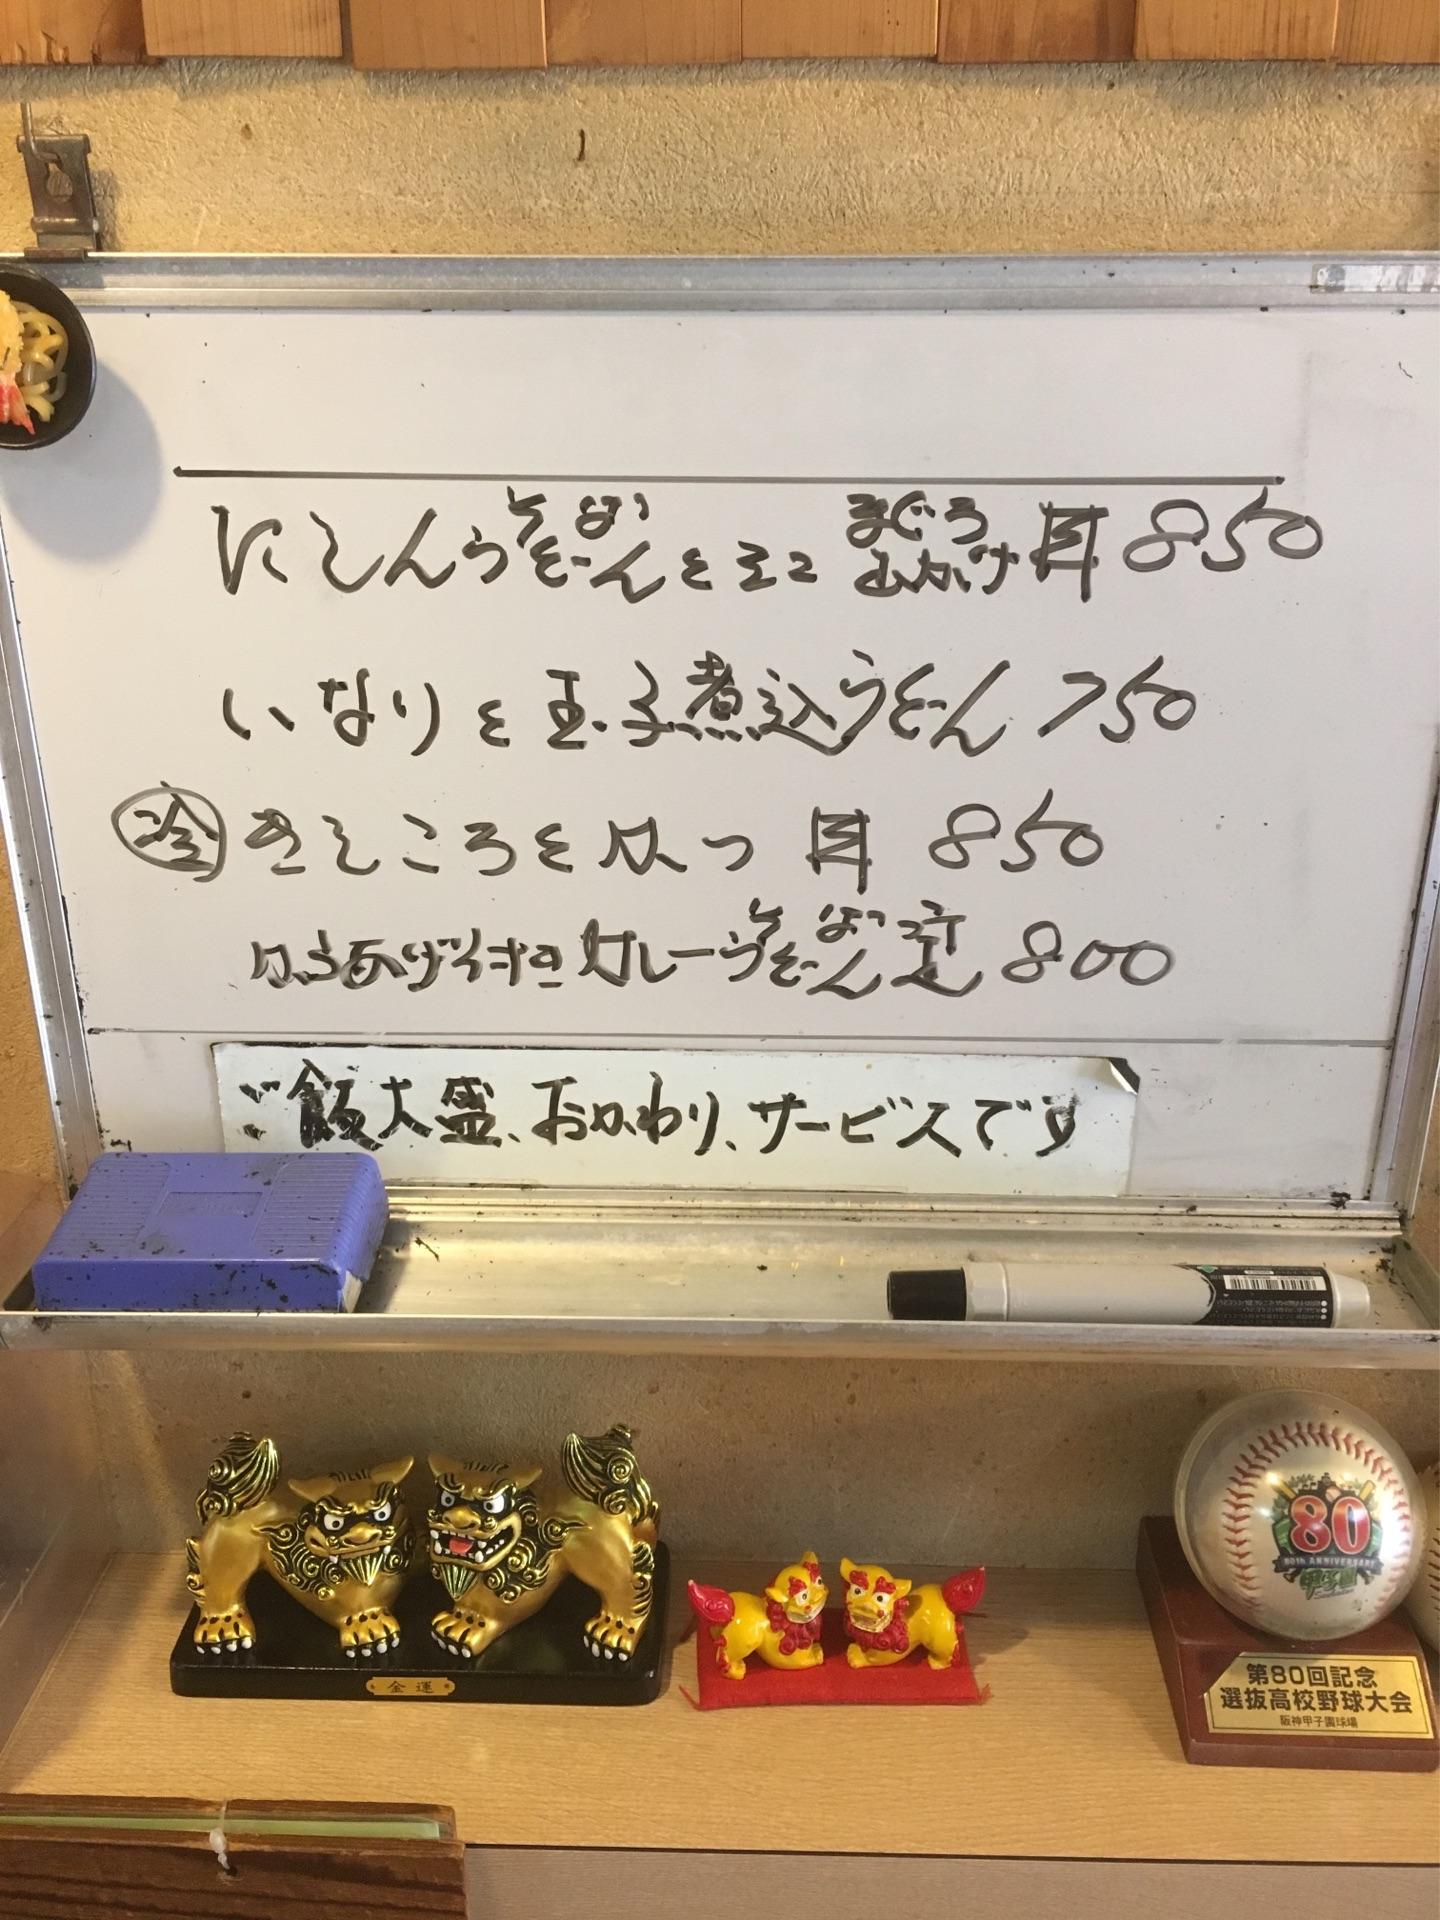 にしんうどん そば とミニまぐろ山かけ丼 850
いなりと玉子煮込うどん 750
冷 きしころとカツ丼 850
から揚げ付きカレーうどん そば 定 800
ご飯大盛、おかわり、サービスです
金運
80
80th ANNIVERSARY
第80回記念
選抜高校野球大会
阪神甲子園球場